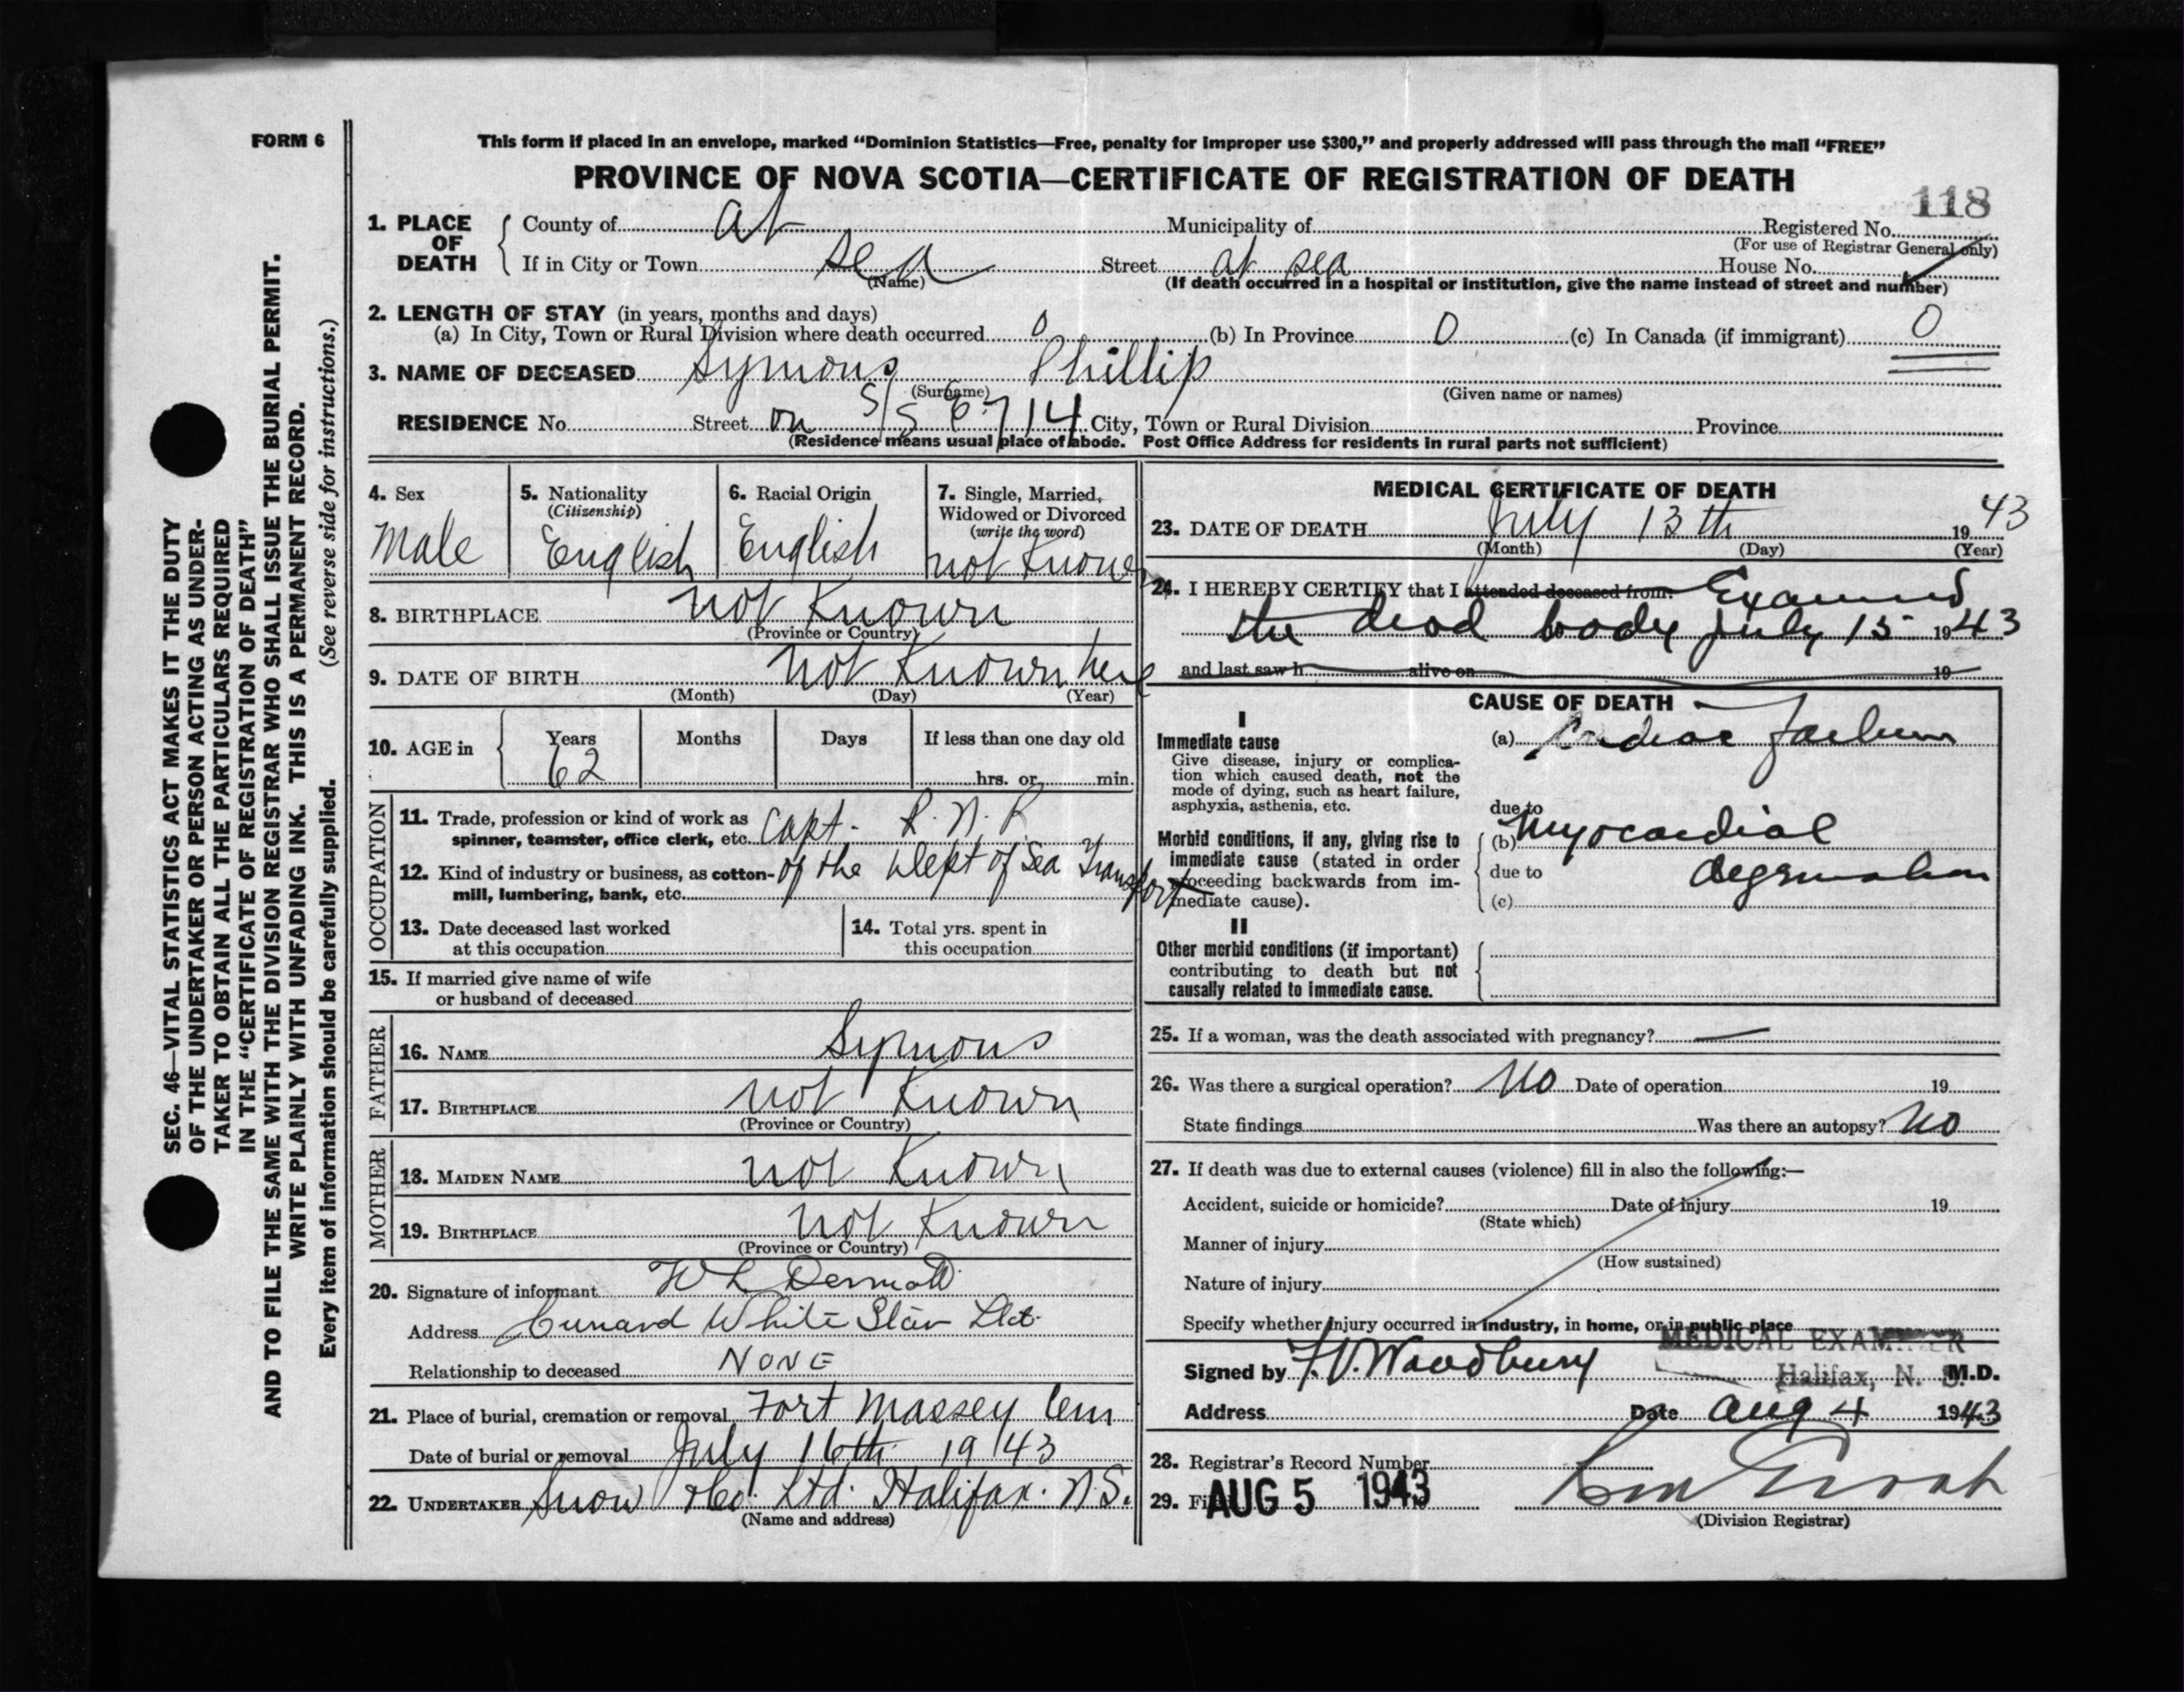 FORM 6
SEC. 46—VITAL STATISTICS ACT MAKES IT THE DUTY
OF THE UNDERTAKER OR PERSON ACTING AS UNDER-
TAKER TO OBTAIN ALL THE PARTICULARS REQUIRED
IN THE "CERTIFICATE OF REGISTRATION OF DEATH"
AND TO FILE THE SAME WITH THE DIVISION REGISTRAR WHO SHALL ISSUE THE BURIAL PERMIT.
WRITE PLAINLY WITH UNFADING INK. THIS IS A PERMANENT RECORD.
Every item of information should be carefully supplied. (See reverse side for instructions.)
This form if placed in an envelope, marked "Dominion Statistics—Free, penalty for improper use $300," and properly addressed will pass through the mail "FREE"
PROVINCE OF NOVA SCOTIA—CERTIFICATE OF REGISTRATION OF DEATH
118
1. PLACE OF DEATH County of at Municipality of Registered No.
(For use of Registrar General only)
If in City or Town sea Street at sea House No.
(Name) (If death occurred in a hospital or institution, give the name instead of street and number)
2. LENGTH OF STAY (in years, months and days)
(a) In City, Town or Rural Division where death occurred 0 (b) In Province 0 (c) In Canada (if immigrant) 0
3. NAME OF DECEASED Symons Phillip
(Surname) (Given name or names)
RESIDENCE No. Street on S/S 6714 City, Town or Rural Division Province
(Residence means usual place of abode. Post Office Address for residents in rural parts not sufficient)
4. Sex
Male
5. Nationality
(Citizenship)
English
6. Racial Origin
English
7. Single, Married,
Widowed or Divorced
(write the word)
not Known
8. BIRTHPLACE not Known
(Province or Country)
9. DATE OF BIRTH not Known here
(Month) (Day) (Year)
10. AGE in Years Months Days If less than one day old
62 hrs. or min.
OCCUPATION
11. Trade, profession or kind of work as
spinner, teamster, office clerk, etc. Capt. R.N.R
12. Kind of industry or business, as cotton-
mill, lumbering, bank, etc. of the Dept of Sea Transport
13. Date deceased last worked
at this occupation
14. Total yrs. spent in
this occupation
15. If married give name of wife
or husband of deceased
FATHER
16. NAME Symons
17. BIRTHPLACE not Known
(Province or Country)
MOTHER
18. MAIDEN NAME not Known
19. BIRTHPLACE not Known
(Province or Country)
20. Signature of informant W L Dermott
Address Cunard White Star Ltd.
Relationship to deceased NONE
21. Place of burial, cremation or removal Fort Massey Cem
Date of burial or removal July 16th 1943
22. UNDERTAKER Snow & Co. Ltd. Halifax. N.S.
(Name and address)
MEDICAL CERTIFICATE OF DEATH
23. DATE OF DEATH July 13th 19 43
(Month) (Day) (Year)
24. I HEREBY CERTIFY that I attended deceased from: Examined
the dead body July 15 1943
and last saw h alive on 19
CAUSE OF DEATH
I
Immediate cause
Give disease, injury or complica-
tion which caused death, not the
mode of dying, such as heart failure,
asphyxia, asthenia, etc.
(a) Cardiac failure
due to
Morbid conditions, if any, giving rise to
immediate cause (stated in order
proceeding backwards from im-
mediate cause).
(b) Myocardial
due to degeneration
(c)
II
Other morbid conditions (if important)
contributing to death but not
causally related to immediate cause.
25. If a woman, was the death associated with pregnancy? —
26. Was there a surgical operation? No Date of operation 19
State findings Was there an autopsy? No
27. If death was due to external causes (violence) fill in also the following:—
Accident, suicide or homicide? Date of injury 19
(State which)
Manner of injury
(How sustained)
Nature of injury
Specify whether injury occurred in industry, in home, or in public place
MEDICAL EXAMINER
Halifax, N. S.
Signed by F.V. Woodbury M.D.
Address Date Aug 4 1943
28. Registrar's Record Number
29. Filed AUG 5 1943
(Division Registrar)